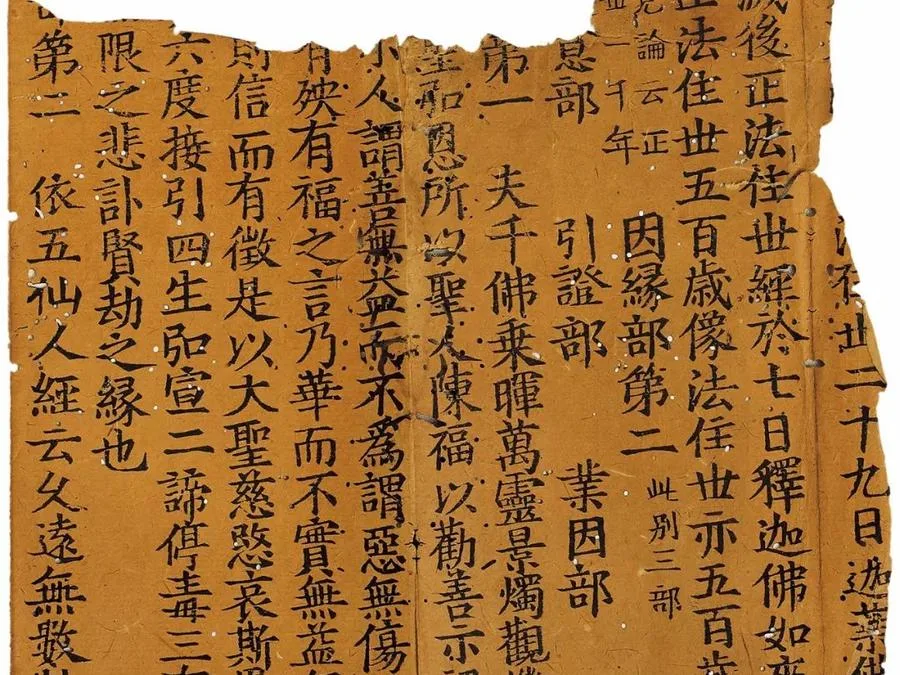 法住世二十九日迦葉佛
滅後正法住世經於七日釋迦佛如來
正法住世五百歲像法住世亦五百歲
見論云正
世一千年
因緣部第二 此別三部
意部 引證部 業因部
第一 夫千佛乘暉萬靈景燭觀
聖弘恩所以聖人陳福以勸善示
小人謂善無益而不為謂惡無傷
有殃有福之言乃華而不實無益
則信而有徵是以大聖慈愍哀斯
六度接引四生弘宣二諦停毒三有
限之悲訃賢劫之緣也
部第二 依五仙人經云久遠無數